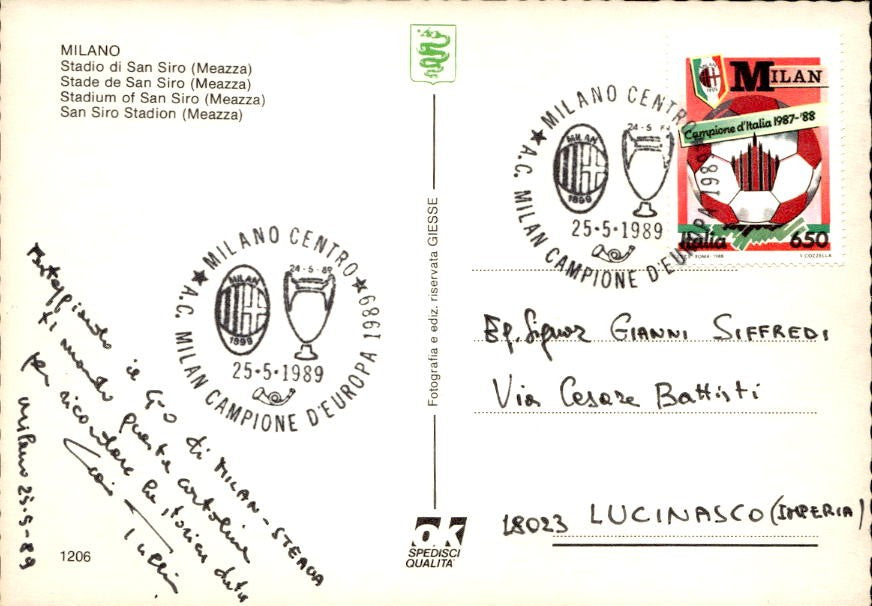 MILANO
Stadio di San Siro (Meazza)
Stade de San Siro (Meazza)
Stadium of San Siro (Meazza)
San Siro Stadion (Meazza)
MILANO CENTRO
A.C. MILAN CAMPIONE D'EUROPA 1989
MILAN
1899
24-5-89
25-5-1989
Festeggiando il 4-0 di MILAN-STEAUA
ti mando questa cartolina
per ricordare la storica data
Ciao
Milano 25-5-89
1206
Fotografia e ediz. riservata GIESSE
ok
SPEDISCI
QUALITA'
MILANO CENTRO
A.C. MILAN CAMPIONE D'EUROPA 1989
MILAN
1899
24-5-
25-5-1989
MILAN
Campione d'Italia 1987-'88
Italia 650
ROMA - 1988
Eg. Signor GIANNI SIFFREDI
Via Cesare Battisti
18023 LUCINASCO (IMPERIA)